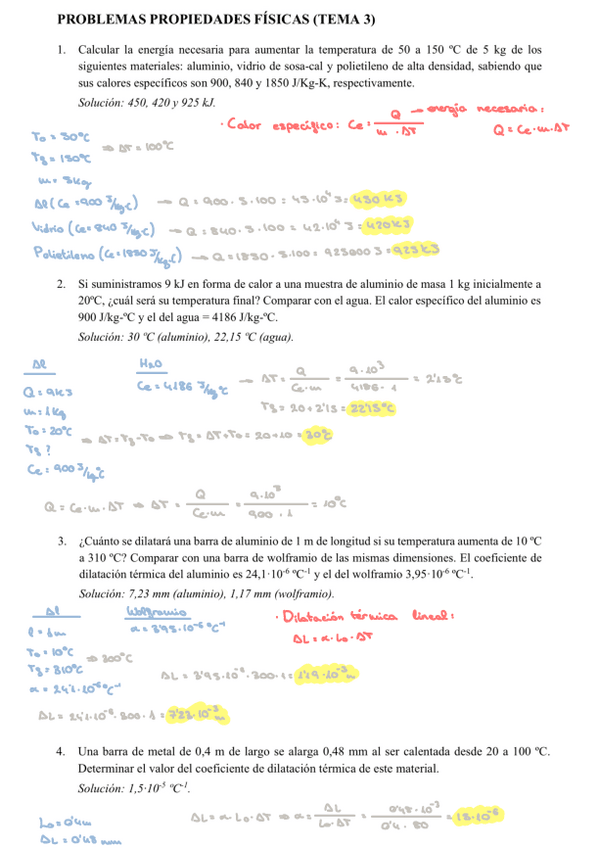 PROBLEMAS PROPIEDADES FÍSICAS (TEMA 3)
1. Calcular la energía necesaria para aumentar la temperatura de 50 a 150 ºC de 5 kg de los
siguientes materiales: aluminio, vidrio de sosa-cal y polietileno de alta densidad, sabiendo que
sus calores específicos son 900, 840 y 1850 J/Kg-K, respectivamente.
Solución: 450, 420 y 925 kJ.
· Calor específico: Ce = Q / m · ΔT → energía necesaria:
Q = Ce·m·ΔT
T₀ = 50ºC
Tf = 150ºC
⇒ ΔT = 100ºC
m = 5kg
Al (Ce = 900 J/kgºC) → Q = 900 · 5 · 100 = 45·10⁴ J = 450 KJ
Vidrio (Ce = 840 J/kgºC) → Q = 840 · 5 · 100 = 42·10⁴ J = 420 KJ
Polietileno (Ce = 1850 J/kgºC) → Q = 1850 · 5·100 = 925000 J = 925 KJ
2. Si suministramos 9 kJ en forma de calor a una muestra de aluminio de masa 1 kg inicialmente a
20ºC, ¿cuál será su temperatura final? Comparar con el agua. El calor especifico del aluminio es
900 J/kg-ºC y el del agua = 4186 J/kg-ºC.
Solución: 30 ºC (aluminio), 22,15 ºC (agua).
Al
Q = 9KJ
m = 1kg
T₀ = 20ºC
Tf ?
Ce = 900 J/kgºC
H₂O
Ce = 4186 J/kgºC
→ ΔT = Q / Ce·m = 9·10³ / 4186 · 1 = 2'15ºC
Tf = 20 + 2'15 = 22'15ºC
⇒ ΔT = Tf - T₀ ⇒ Tf = ΔT + T₀ = 20 + 10 = 30ºC
Q = Ce · m · ΔT ⇒ ΔT = Q / Ce·m = 9·10³ / 900 · 1 = 10ºC
3. ¿Cuánto se dilatará una barra de aluminio de 1 m de longitud si su temperatura aumenta de 10 ºC
a 310 ºC? Comparar con una barra de wolframio de las mismas dimensiones. El coeficiente de
dilatación térmica del aluminio es 24,1·10⁻⁶ ºC⁻¹ y el del wolframio 3,95·10⁻⁶ ºC⁻¹.
Solución: 7,23 mm (aluminio), 1,17 mm (wolframio).
Al
l = 1m
T₀ = 10ºC
Tf = 310ºC
⇒ 300ºC
α = 24'1·10⁻⁶ºC⁻¹
Wolframio
α = 3'95·10⁻⁶ ºC⁻¹
· Dilatación térmica lineal:
ΔL = α · L₀ · ΔT
ΔL = 3'95·10⁻⁶ · 300 · 1 = 1'19·10⁻³ m
ΔL = 24'1·10⁻⁶ · 300 · 1 = 7'23·10⁻³ m
4. Una barra de metal de 0,4 m de largo se alarga 0,48 mm al ser calentada desde 20 a 100 ºC.
Determinar el valor del coeficiente de dilatación térmica de este material.
Solución: 1,5·10⁻⁵ ºC⁻¹.
L₀ = 0'4m
ΔL = 0'48 mm
ΔL = α L₀·ΔT ⇒ α = ΔL / L₀·ΔT = 0'48·10⁻³ / 0'4 · 80 = 15·10⁻⁶